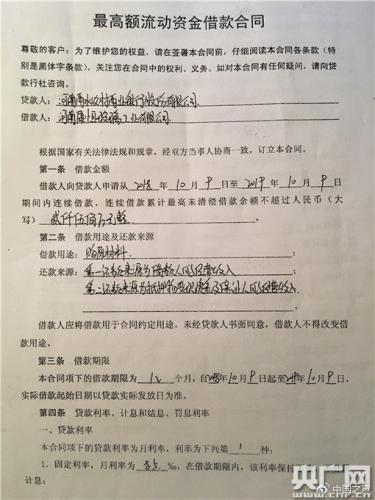 最高额流动资金借款合同
尊敬的客户：为了维护您的权益，请在签署本合同前，仔细阅读本合同各条款（特
别是黑体字条款），关注您在合同中的权利、义务。如对本合同有任何疑问，请向贷
款行社咨询。
贷款人：河南 农村商业银行股份有限公司
借款人：河南 工业有限公司
根据国家有关法律法规和规章，经双方当事人协商一致，订立本合同。
第一条 借款金额
借款人向贷款人申请从 2018 年 10 月 9 日至 2019 年 10 月 9 日
内连续借款，连续借款累计最高未清偿借款余额不超过人民币（大
写）贰仟伍佰万元整
第二条 借款用途及还款来源
借款用途：购原材料
还款来源：第一还款来源为借款人 收入
第二还款来源为抵押物变现 及保证人 收入
借款人应将借款用于合同约定用途，未经贷款人书面同意，借款人不得改变借
款用途。
第三条 借款期限
本合同项下的借款期限为 12 个月，自2018年10月9日起至2019年10月9日，
实际借款起始日期以贷款实际发放日为准。
第四条 贷款利率、计息和结息、罚息利率
一、贷款利率
本合同项下的贷款利率为月利率，利率为下列第 1 种：
1．固定利率，月利率为 ‰，在借款期限内，该利率保持
计息：
央广网
www.cnr.cn
@中国之声